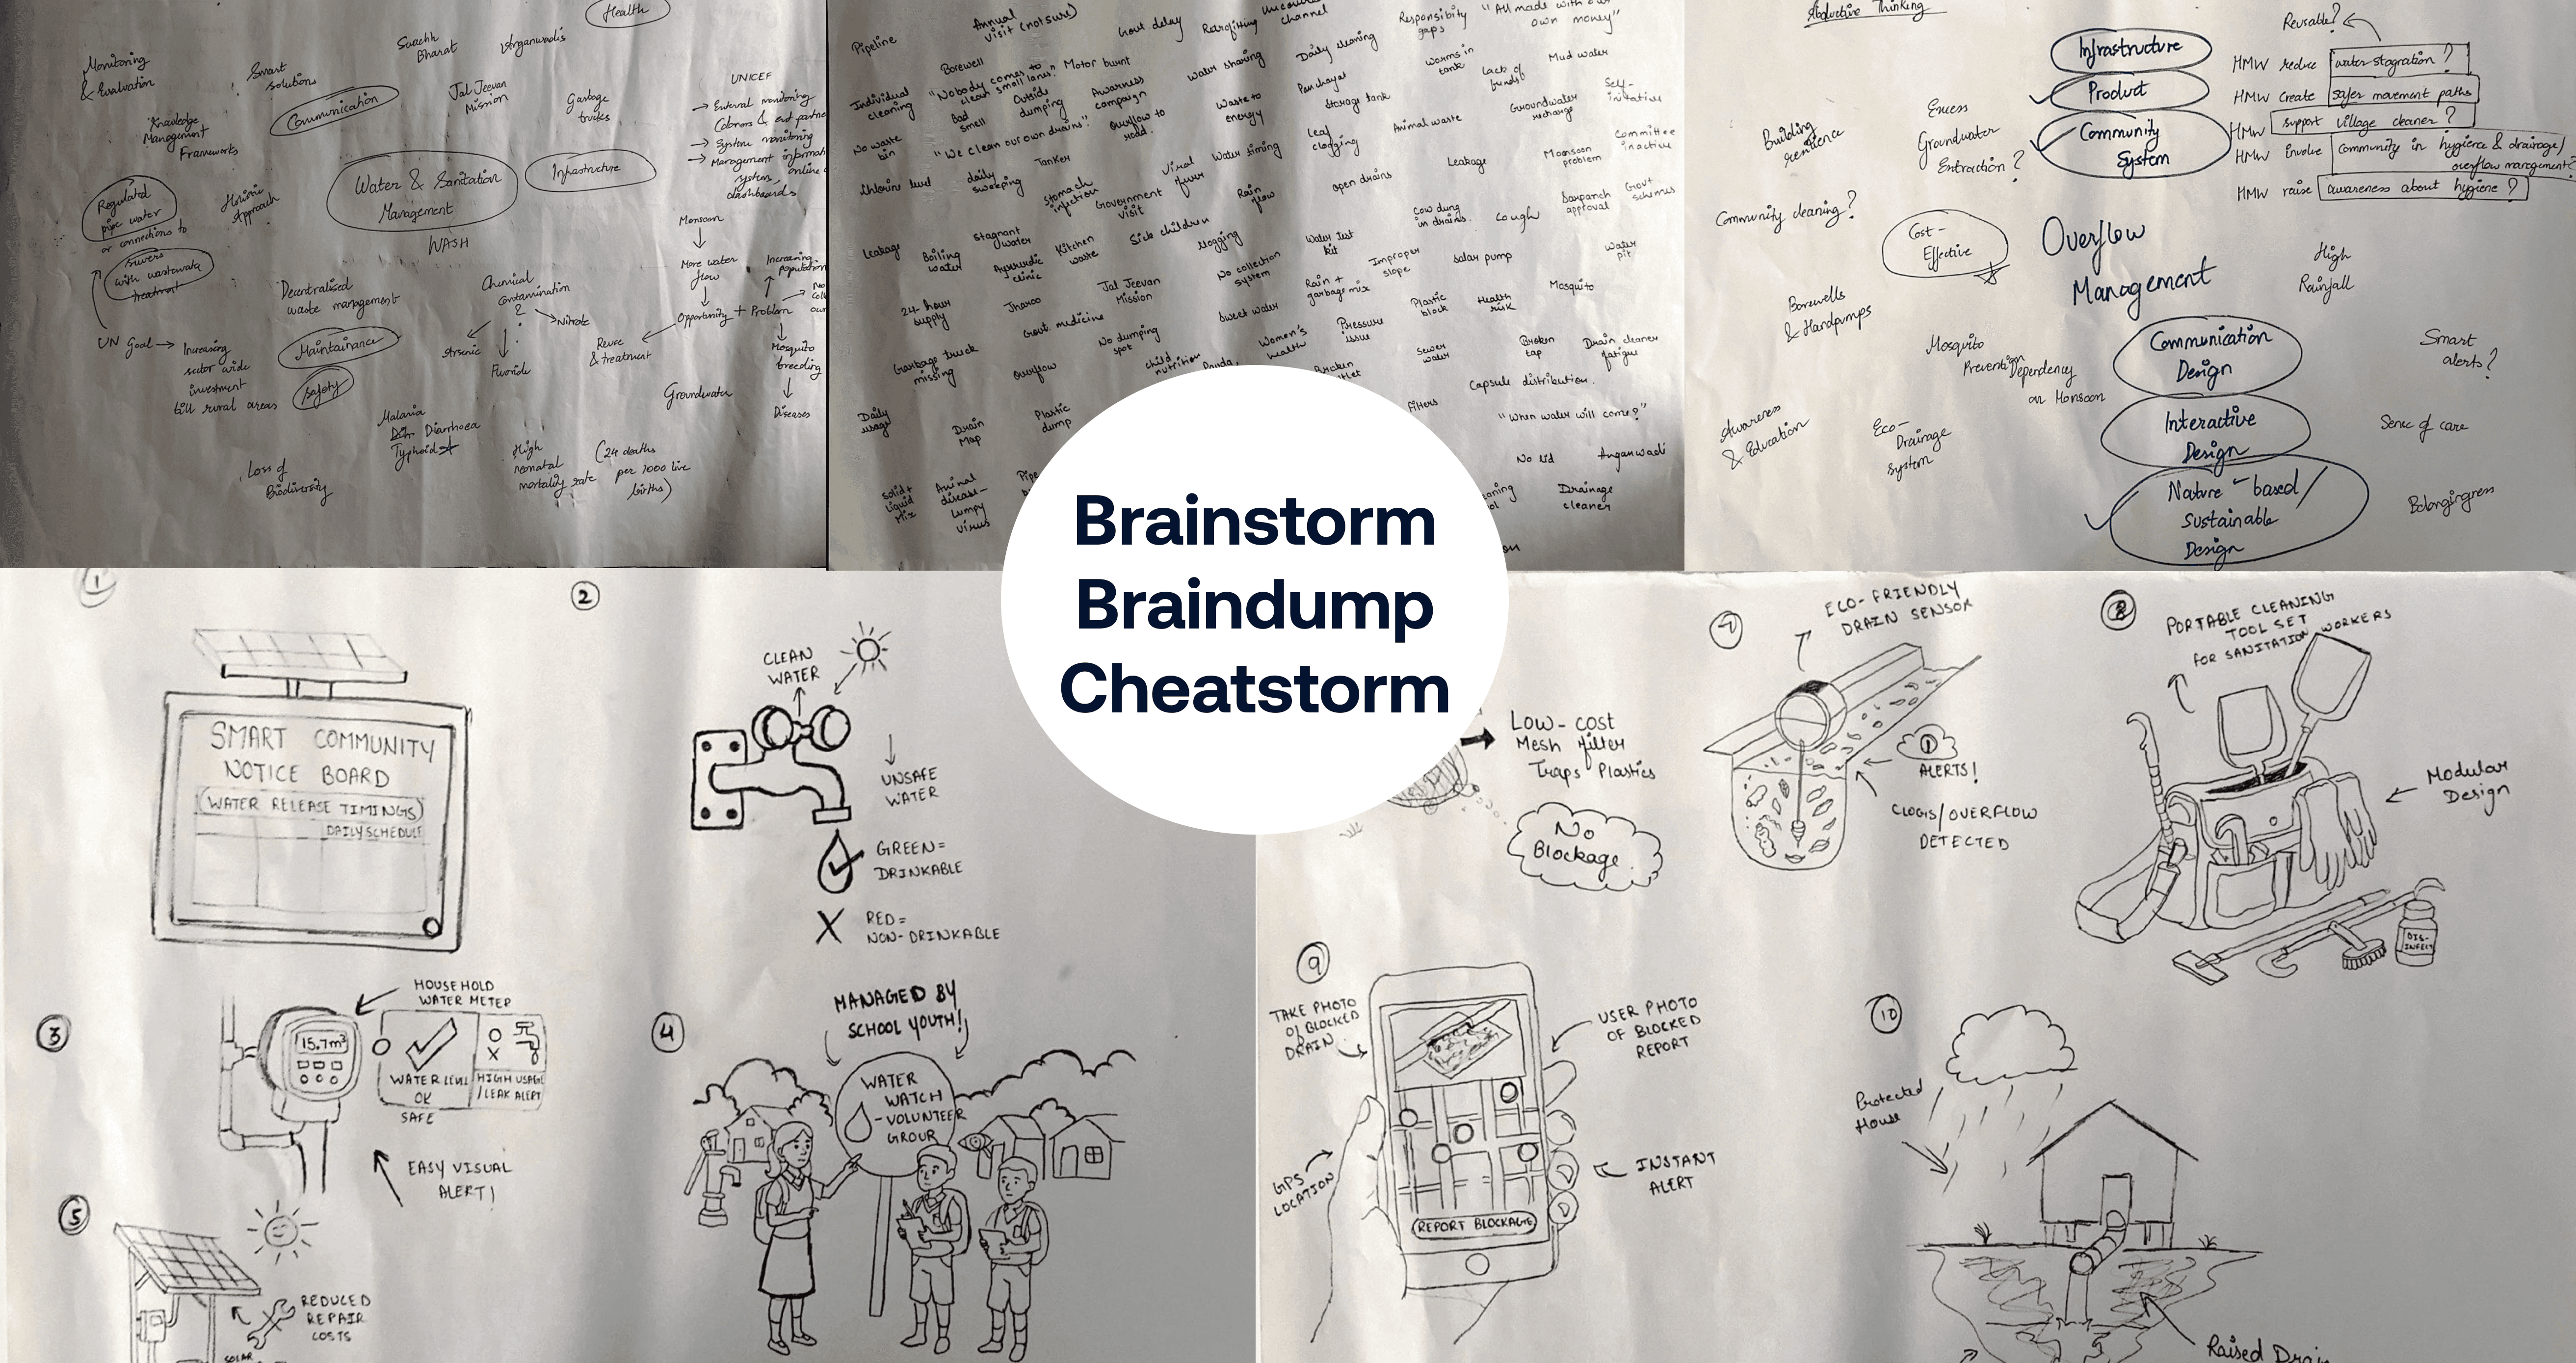 Health
Monitoring
& Evaluation
Smart
solutions
Swachh
Bharat
Anganwadis
Communication
Jal Jeevan
Mission
Garbage
trucks
UNICEF
→ External monitoring
→ System monitoring
→ Management
system,
dashboards
Knowledge
Management
Frameworks
Water & Sanitation
Management
Infrastructure
WASH
Regulated
pipe water
or connections to
sewers
with wastewater
treatment
Holistic
Approach
Monsoon
More water
flow
Increasing
population
Opportunity + Problem
Mosquito
breeding
Diseases
Decentralised
waste management
Chemical
contamination
Arsenic
Fluoride
Nitrate
Reuse
& treatment
UN Goal →
Increasing
sector wide
investment
till rural areas
Maintainance
Safety
Groundwater
Malaria
Diarrhoea
Typhoid
Loss of
Biodiversity
High
neonatal
mortality rate
(24 deaths
per 1000 live
births)
Pipeline
Annual
visit (not sure)
Govt delay
Retrofitting
channel
Responsibility
gaps
"All made with our
own money"
Borewell
Motor burnt
Water sharing
Daily cleaning
Worms in
tank
Mud water
Individual
cleaning
"Nobody comes to
clean small lanes."
Outside
dumping
Awarness
campaign
Panchayat
Lack of
funds
Bad
smell
Storage tank
Groundwater
recharge
Self-
initiative
No waste
bin
"We clean our own drains"
Overflow to
road
Waste to
energy
Leaf
clogging
Animal waste
Committee
inactive
Chlorine level
daily
sweeping
Tanker
Viral
fever
Water timing
Leakage
Monsoon
problem
Stomach
infection
Government
visit
Rain
flow
Open drains
Sarpanch
approval
Govt.
schemes
Leakage
Boiling
water
Stagnant
water
Kitchen
waste
Sick children
Clogging
Water test
kit
Cow dung
in drains
Cough
Ayurvedic
clinic
No collection
system
Improper
slope
Solar pump
Water
pit
24-hour
supply
Jharoo
Jal Jeevan
Mission
Rain +
garbage mix
Plastic
block
Health
risk
Mosquito
Govt. medicine
No dumping
spot
Sweet water
Women's
health
Pressure
issue
Garbage truck
missing
Overflow
child
nutrition
Broken
Sewer
water
Broken
tap
Drain cleaner
fatigue
Daily
usage
Drain
Map
Plastic
dump
Filters
Capsule distribution.
"When water will come?"
Solid +
Liquid
Mix
Animal
disease-
Lumpy
virus
No lid
Anganwadi
Drainage
cleaner
Abductive Thinking
Infrastructure
Product
Community
System
Reusable?
HMW reduce water stagnation?
HMW create safer movement paths
HMW support village cleaner?
HMW involve community in hygiene & drainage/
overflow management?
HMW raise awareness about hygiene?
Building
resilience
Excess
Groundwater
Extraction?
Community cleaning?
Cost-
Effective
Overflow
Management
High
Rainfall
Borewells
& Handpumps
Mosquito
Prevention
Dependency
on Monsoon
Communication
Design
Interactive
Design
Nature-based/
Sustainable
Design
Smart
alerts?
Awareness
& Education
Eco-
Drainage
System
Sense of care
Belongingness
Brainstorm
Braindump
Cheatstorm
1
SMART COMMUNITY
NOTICE BOARD
(WATER RELEASE TIMINGS)
DAILY SCHEDULE
2
CLEAN
WATER
UNSAFE
WATER
GREEN =
DRINKABLE
X RED =
NON-DRINKABLE
3
HOUSEHOLD
WATER METER
15.7m³
WATER LEVEL
OK
SAFE
HIGH USAGE
/LEAK ALERT
EASY VISUAL
ALERT!
4
MANAGED BY
SCHOOL YOUTH!
WATER
WATCH
-VOLUNTEER
GROUP
5
REDUCED
REPAIR
COSTS
SOLAR
Low-cost
Mesh filter
Traps Plastics
No
Blockage
7
ECO-FRIENDLY
DRAIN SENSOR
ALERTS!
CLOGS/OVERFLOW
DETECTED
8
PORTABLE CLEANING
TOOL SET
FOR SANITATION WORKERS
Modular
Design
DIS-
INFECT
9
TAKE PHOTO
OF BLOCKED
DRAIN
USER PHOTO
OF BLOCKED
REPORT
GPS
LOCATION
INSTANT
ALERT
REPORT BLOCKAGE
10
Protected
House
Raised Drain